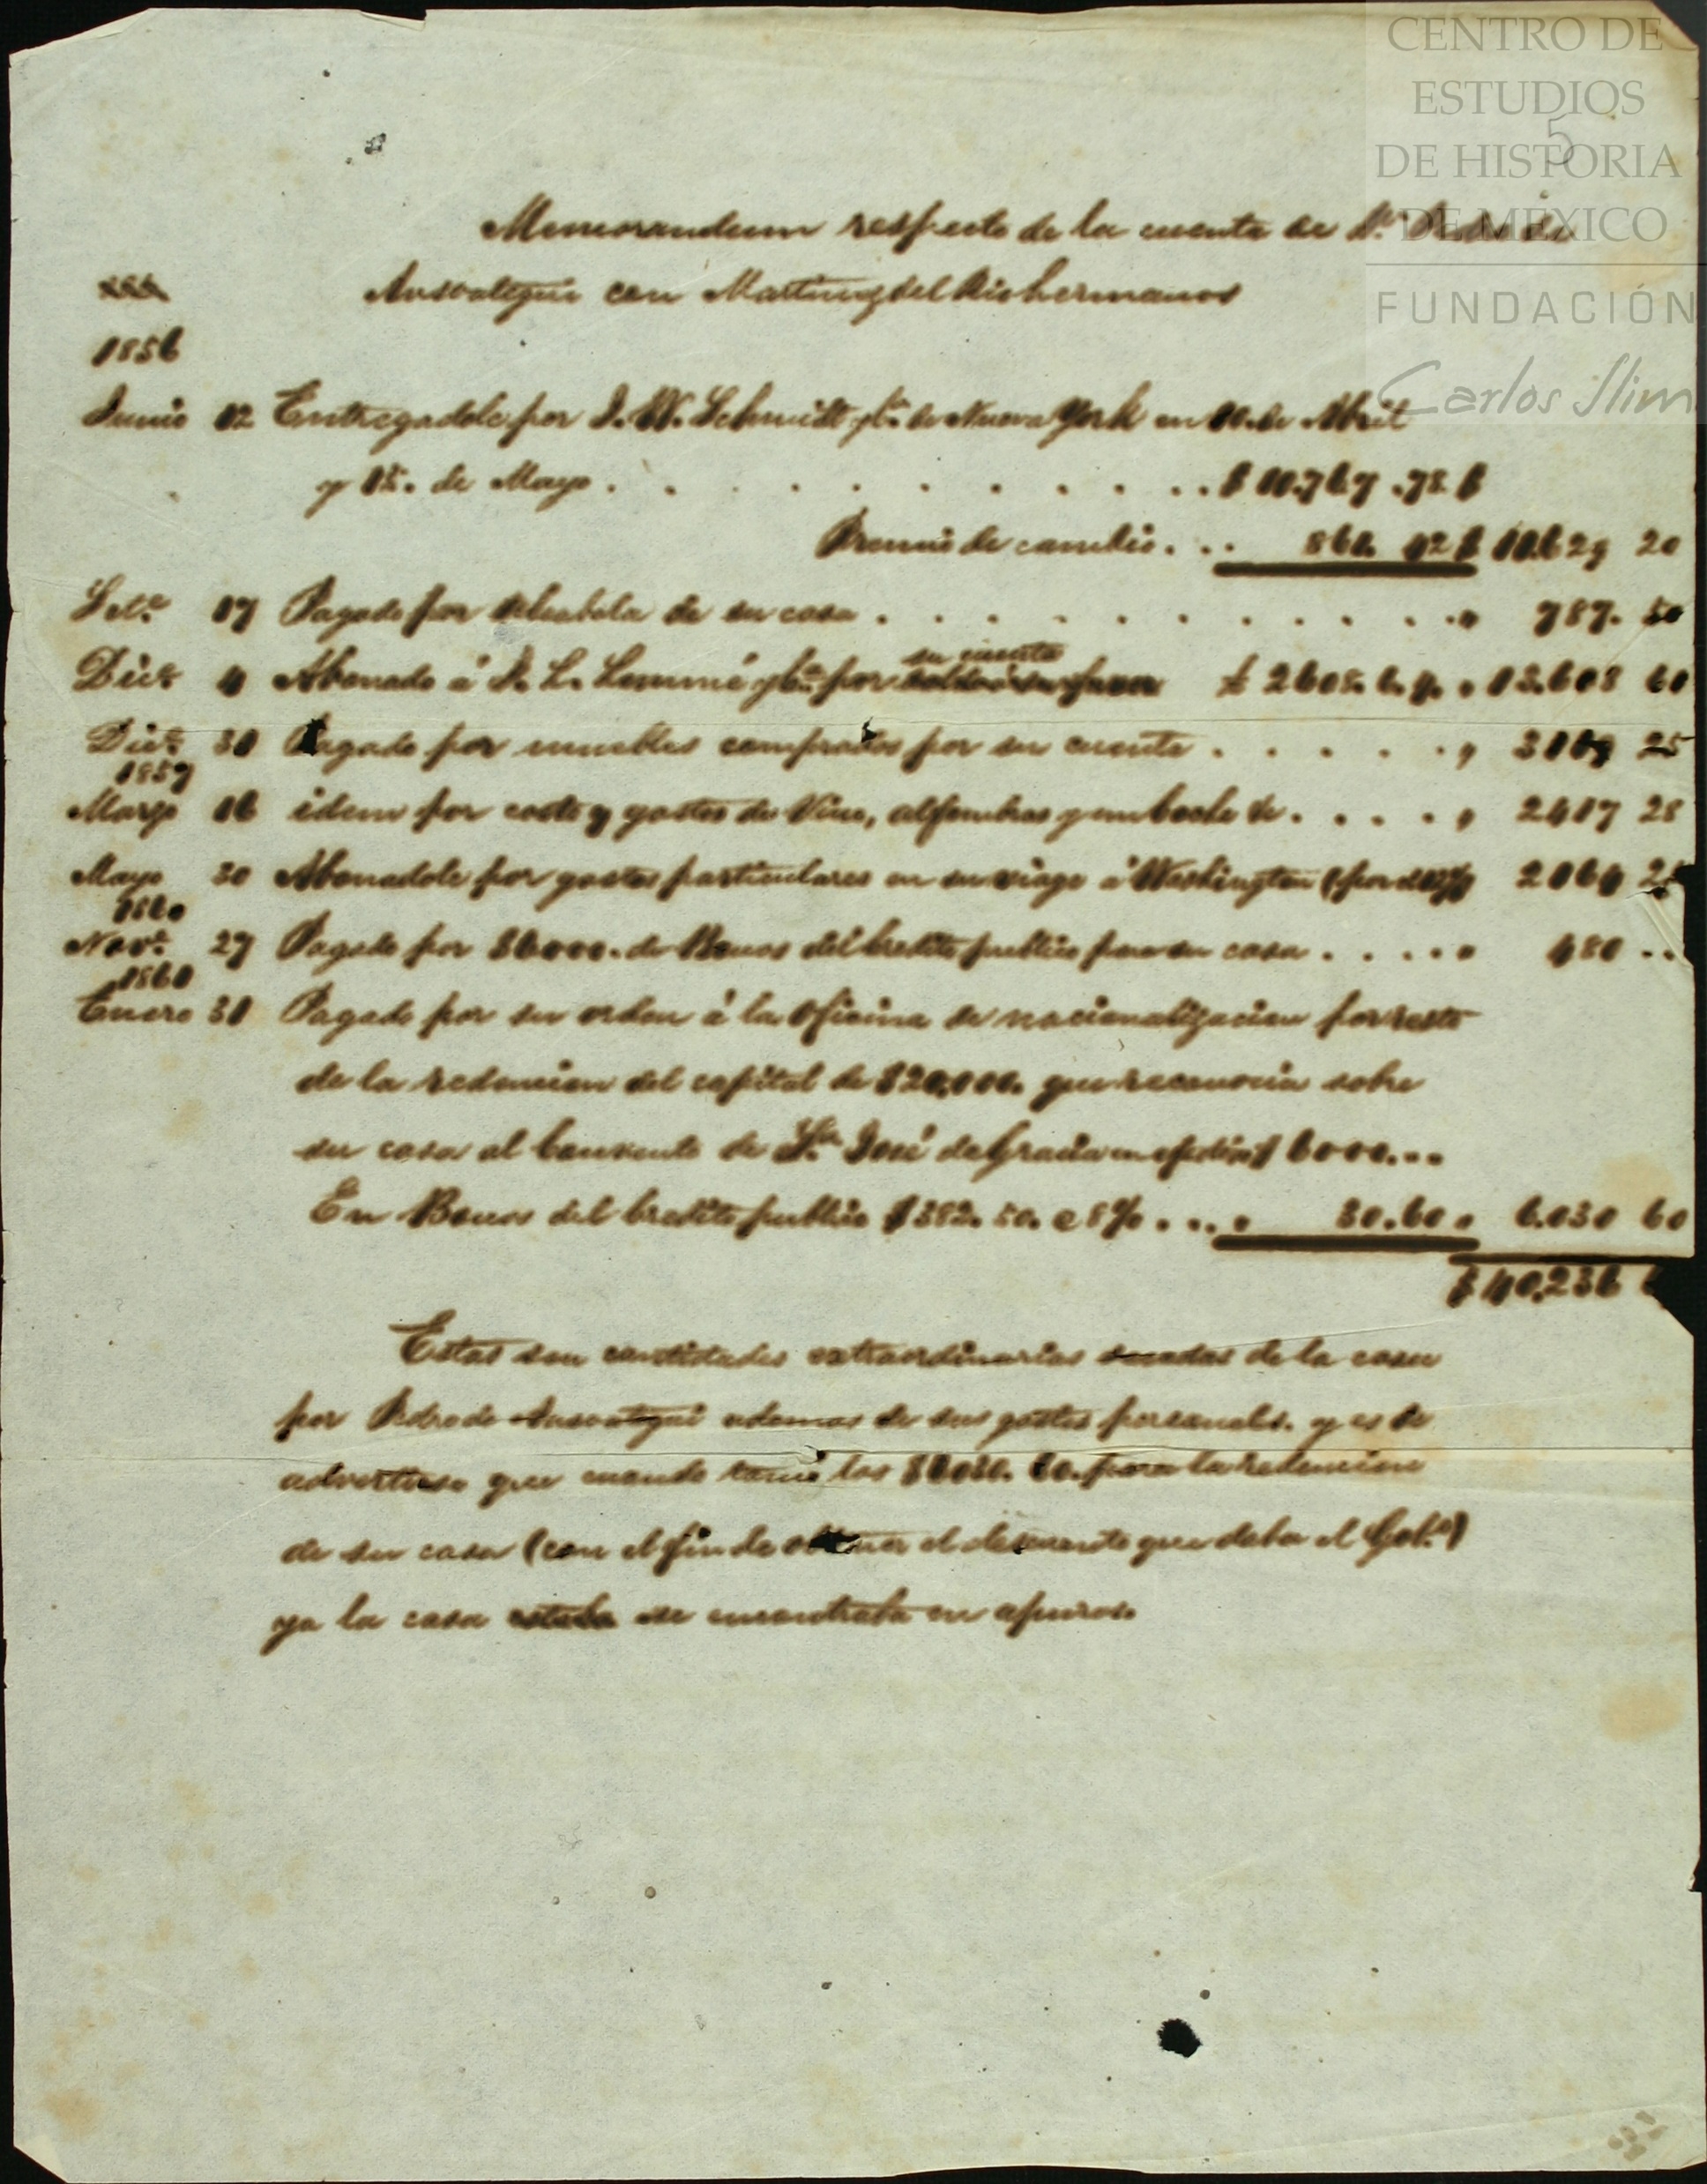 CENTRO DE
ESTUDIOS
DE HISTORIA
DE MÉXICO
FUNDACIÓN
Carlos Slim
5
Memorandum respecto de la cuenta de Dn. Pedro de
Ansoategui con Martinez del Rio hermanos
1856
Junio 12 Entregadole por J. W. Schmidt y Ca. de Nueva York en 10. de Abril
y 15. de Mayo . . . . . . . . . . . . $ 10.767.78 $
Premio de cambio . . . 861. 42 $ 11.629 20
Set.e 17 Pagado por alcabala de su casa . . . . . . . . . . . . " 787. 50
Dic.e 4 Abonado á J. L. Lemmé y Ca. por su cuenta £ 2608. 6. 7. " 13.608 60
Dic.e 30 Pagado por muebles comprados por su cuenta . . . . . . " 3169 25
1857
Marzo 16 idem por costo y gastos de Vino, alfombras y un boche &c . . . . . " 2417 28
Mayo 30 Abonadole por gastos particulares en su viage á Washington 2064 25
1860
Nov.e 27 Pagado por $6000. de Bonos del Credito publico para su casa . . . . . " 480 ..
1861
Enero 31 Pagado por su orden á la oficina de nacionalizacion por resto
de la redencion del capital de $20,000. que reconocia sobre
su casa al Convento de Sn. José de Gracia en efectivo $ 6000...
En Bonos del Credito publico $382. 50. @ 8% . . . . " 30.60 " 6.030 60
$ 40,236
Estas son cantidades extraordinarias sacadas de la casa
por Pedro de Ansoategui ademas de sus gastos personales. y es de
advertirse que cuando tomó los $6030. 60. para la redencion
de su casa (con el fin de obtener el descuento que daba el Gob.no)
ya la casa estaba se encontraba en apuros.